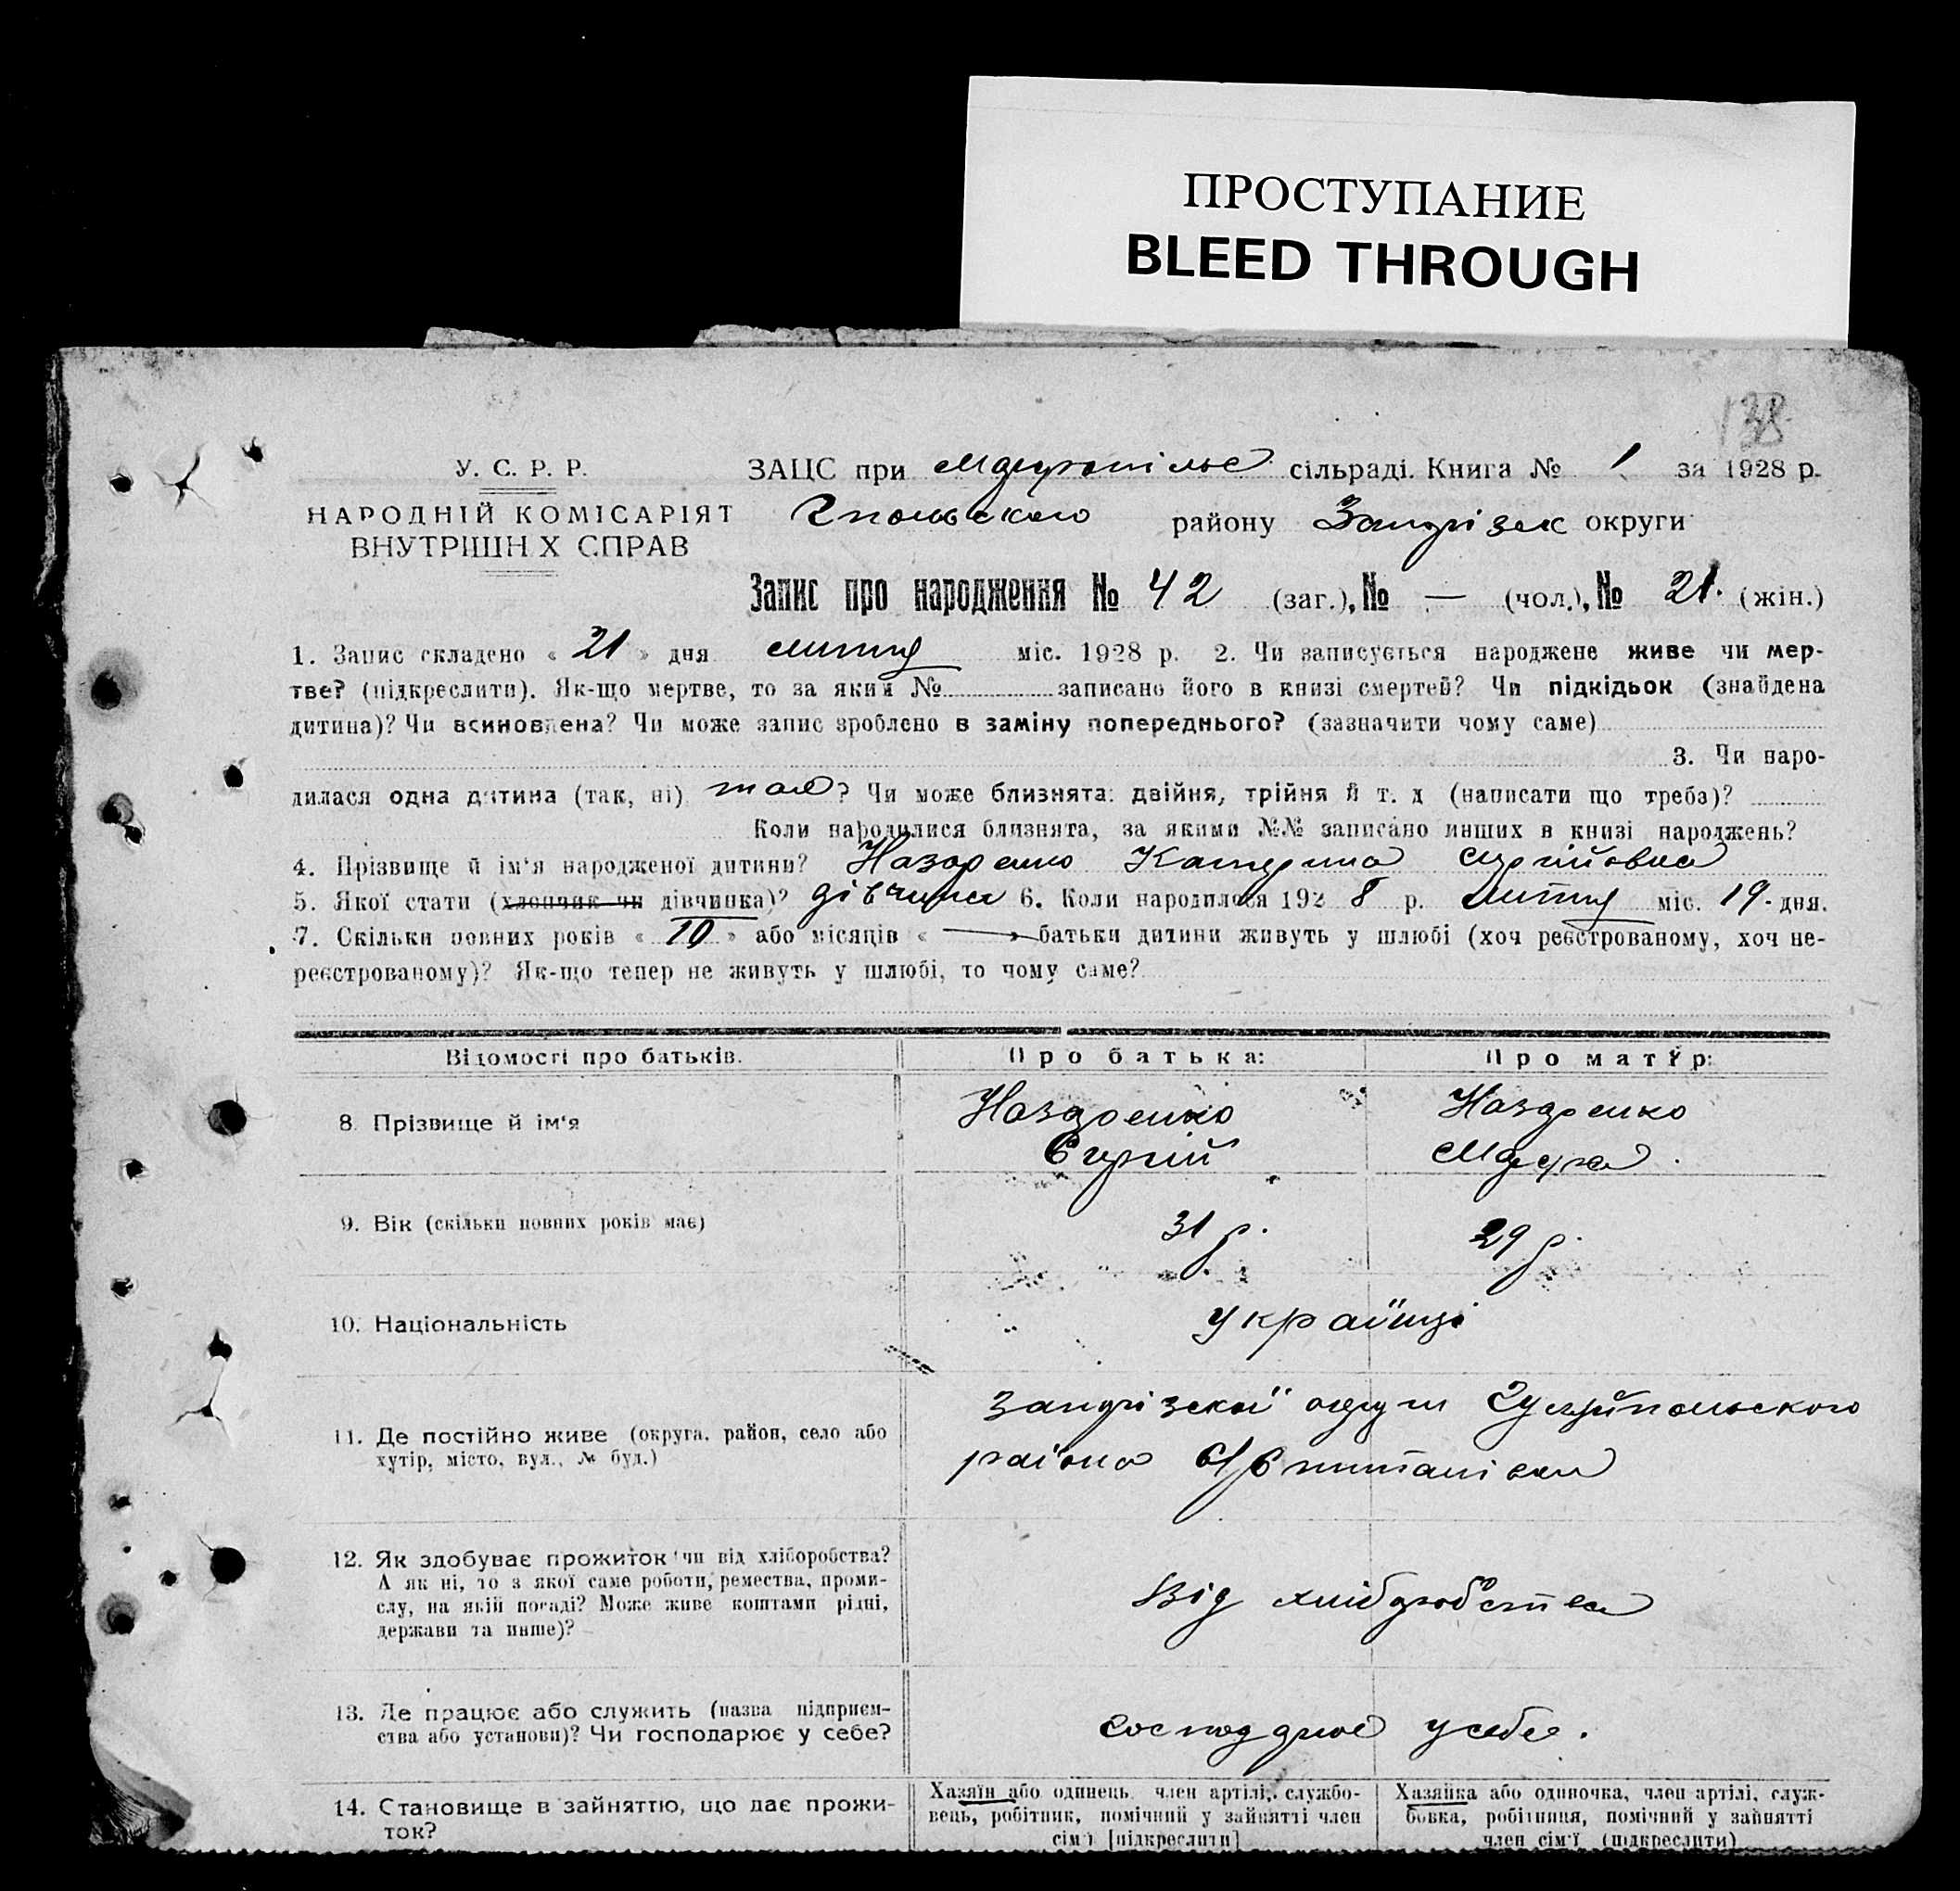 ПРОСТУПАНИЕ
BLEED THROUGH
138
У. С. Р. Р.
НАРОДНІЙ КОМІСАРІЯТ
ВНУТРІШН Х СПРАВ
ЗАЦС при сільраді. Книга № 1 за 1928 р.
району Запорізск округи
Запис про народження № 42 (заг.), № — (чол.), № 21. (жін.)
1. Запис складено « 21 » дня міс. 1928 р. 2. Чи записується народжене живе чи мер-
тве? (підкреслити). Як-що мертве, то за яким № записано його в книзі смертей? Чи підкідьок (знайдена
дитина)? Чи всиновлена? Чи може запис зроблено в заміну попереднього? (зазначити чому саме)
3. Чи наро-
дилася одна дитина (так, ні) так? Чи може близнята: двійня, трійня й т. д (написати що треба)?
Коли народилися близнята, за якими №№ записано инших в книзі народжень?
4. Прізвище й ім'я народженої дитини? Назаренко Катерина
5. Якої стати (хлопчик чи дівчинка)? дівчина 6. Коли народилося 1928 р. міс. 19. дня.
7. Скільки повних років « 10 » або місяців « — » батьки дитини живуть у шлюбі (хоч реєстрованому, хоч не-
реєстрованому)? Як-що тепер не живуть у шлюбі, то чому саме?
Відомості про батьків.
Про батька:
Про матір:
8. Прізвище й ім'я
Назаренко
Сергій
Назаренко
9. Вік (скільки повних років має)
31 р.
29 р.
10. Національність
українці
11. Де постійно живе (округа, район, село або
хутір, місто, вул., № буд.)
Запорізскої округи Гуляйпольского
району
12. Як здобуває прожиток чи від хліборобства?
А як ні, то з якої саме роботи, ремества, проми-
слу, на якій посаді? Може живе коштами рідні,
держави та инше)?
Від хліборобства
13. Де працює або служить (назва підприєм-
ства або установи)? Чи господарює у себе?
господарює у себе.
14. Становище в зайняттю, що дає прожи-
ток?
Хазяїн або одинець, член артілі, службо-
вець, робітник, помічний у зайнятті член
сім'ї [підкреслити]
Хазяйка або одиночка, член артілі, служ-
бовка, робітниця, помічний у зайнятті
член сім'ї (підкреслити)